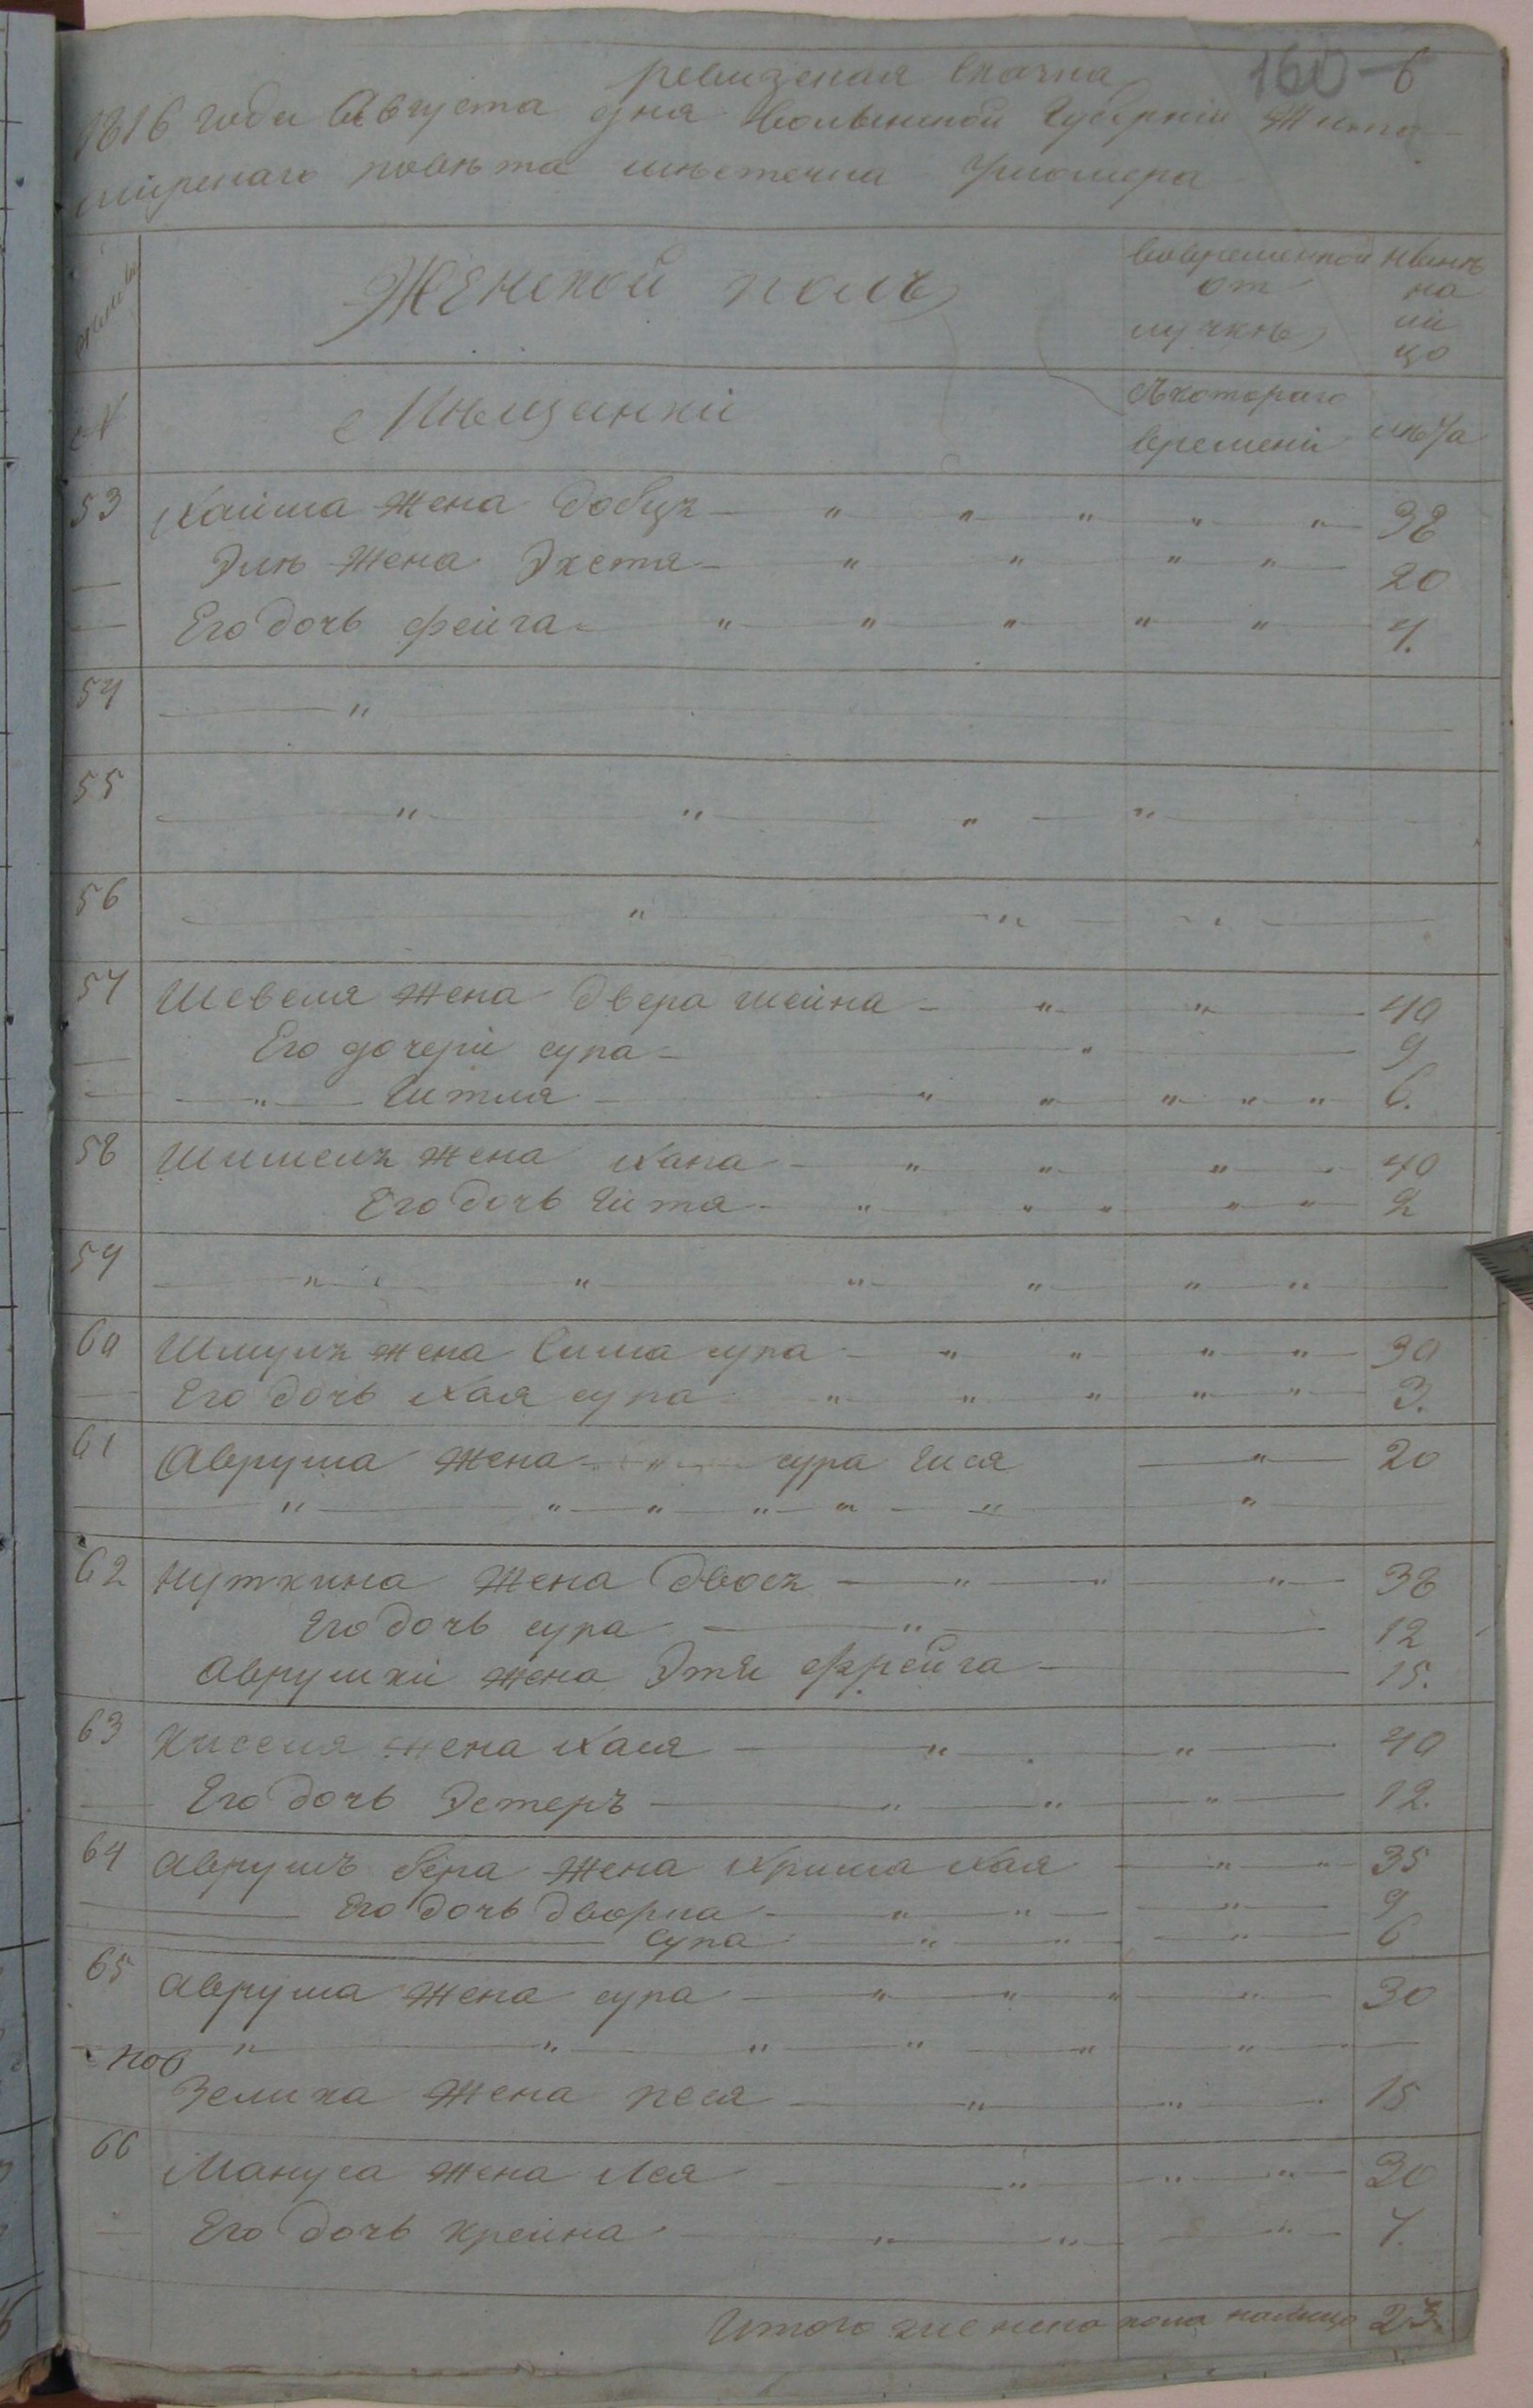 160 6
ревизская Скаска
1816 года Августа дня Волынской Губерніи Жито
мірскаго повѣта мѣстечка Чюомера
Женской полъ
вовременной нынѣ
от на
лучкѣ ли
цо
№ Мѣщанки
съ котораго
времени лѣта
53 Хаима жена Добуз — " — " — " — " — " — 38
— Элѣ жена Эхетя — " — " — " — " — 20
— Его дочь фейга — " — " — " — " — " — 4.
54 — " —
55 — " — " — " — " —
56 — " — " — " —
57 Шевеля жена двера шейна — " — " — 40
— Его дочери сура — " — 9
— " — Гитля — " — " — " — " — " — 6.
58 Шимелъ жена Хана — " — " — " — 40
Его дочь Гитя — " — " — " — " — " — 2
59 — " — " — " — " — " — " —
60 Шмулъ жена Сима сура — " — " — " — " — 30
— Его дочь Хая сура — " — " — " — " — " — 3.
61 Аврума жена — " — сура Гися — " — 20
— " — " — " — " — " — " — "
62 Нуткина жена Двося — " — " — " — 38
Его дочь сура — " — 12
Аврумки жена Этя Фрейга — 15.
63 Киселя жена Хася — " — " — 40
— Его дочь Эстеръ — " — " — " — 12.
64 Аврумъ бера жена Хрима Хая — " — " — 35
— Его дочь дворка — " — " — " — 9
— Сура — " — " — " — 6
65 Аврума жена сура — " — " — " — " — 30
— " — " — " — " — " — " —
нов
Зелика жена песя — " — " — 15
66 Мануса жена Лея — " — " — " — 30
— Его дочь крейна — " — " — " — 7.
Итого женска пола налицо 23.